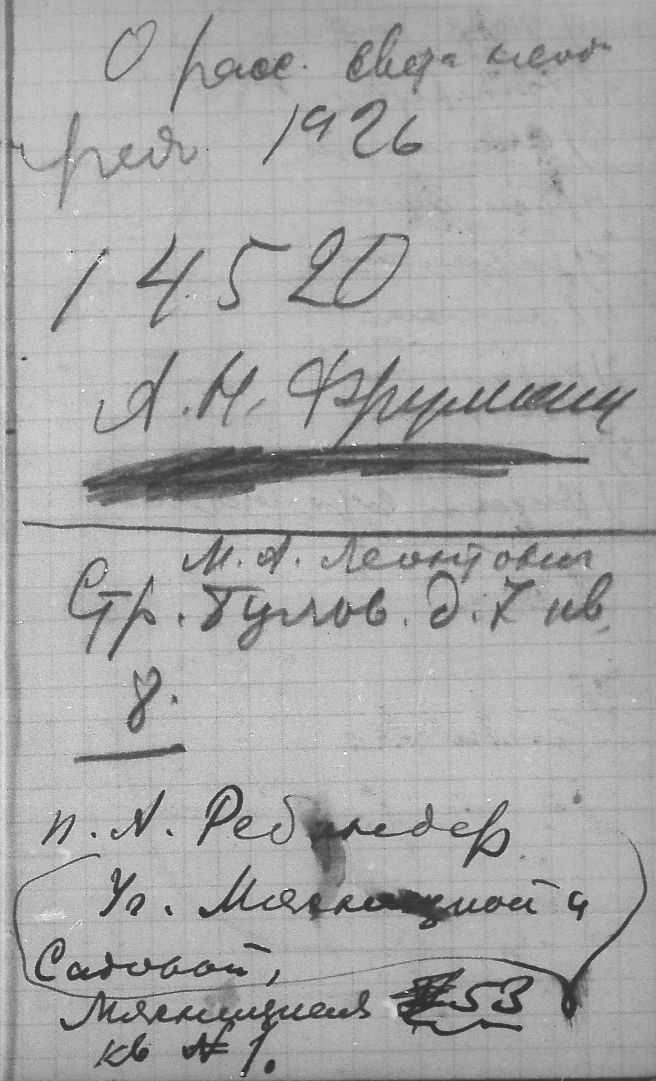 О расс. света
1926
14520
А.Н. Фрумкин
М.А. Леонтович
Стр. бульв. д. 7 кв.
8.
П.А. Ребиндер
Уг. Мясницкой и
Садовой,
Мясницкая 53
кв № 1.